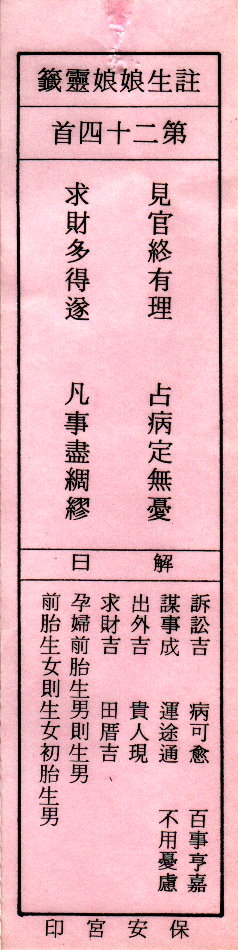 註生娘娘靈籤
第二十四首
見官終有理　占病定無憂
求財多得遂　凡事盡綢繆
解曰
訴訟吉　病可愈　百事亨嘉
謀事成　運途通　不用憂慮
出外吉　貴人現
求財吉　田厝吉
孕婦前胎生男則生男
前胎生女則生女初胎生男
保安宮印